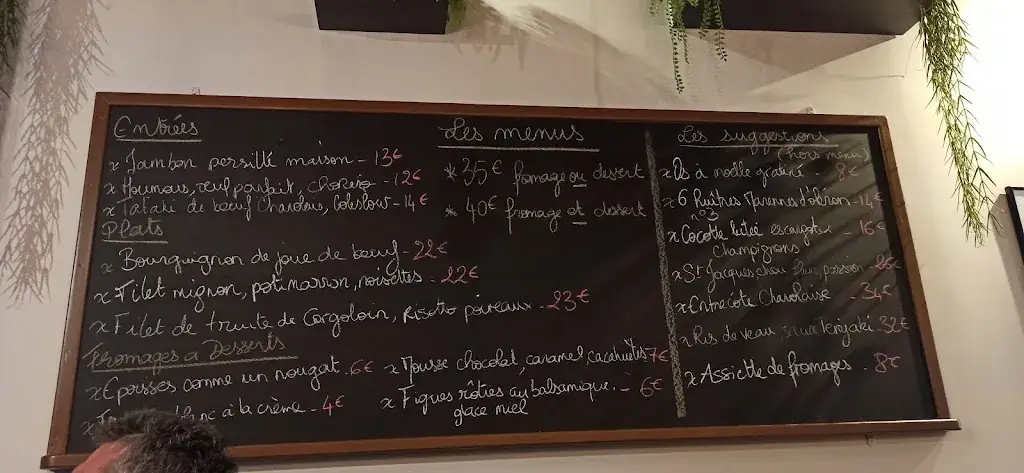 Entrées
x Jambon persillé maison - 13€
x Houmous, œuf parfait, chorizo - 12€
x Tataki de bœuf Charolais, Coleslow - 14€
Plats
x Bourguignon de joue de bœuf - 22€
x Filet mignon, potimarron, noisettes - 22€
x Filet de truite de Corgoloin, Risotto poireaux - 23€
Fromages & Desserts
x Epoisses comme un nougat. 6€
blanc à la crème - 4€
x Mousse chocolat, caramel, cacahuètes 7€
x Figues rôties au balsamique. - 6€
glace miel
Les menus
* 35€ fromage ou dessert
* 40€ fromage et dessert
Les suggestions
(hors menu)
x Os à moëlle gratiné - 8€
x 6 Huîtres Marennes d'oléron - 14€
n°3
x Cocotte lutée escargots - 16€
Champignons
x St Jacques chou 26€
x Entrecôte Charolaise - 34€
x Ris de veau Teriyaki 32€
x Assiette de fromages . 8€